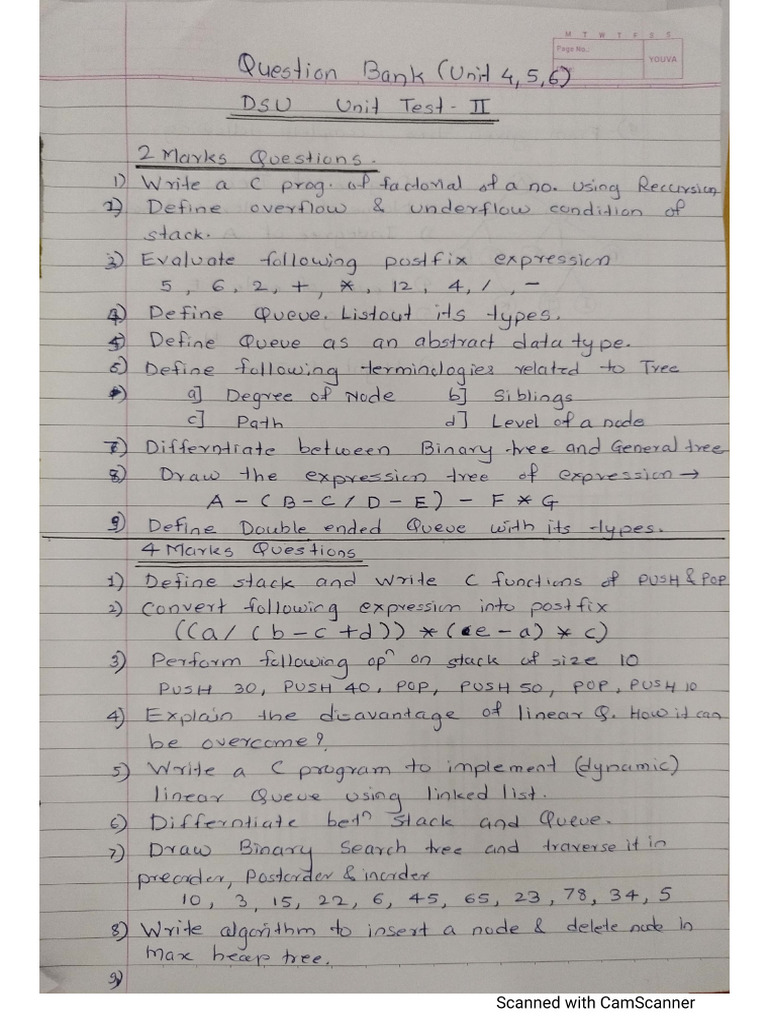 M T W T F S S
Page No.:
YOUVA
Question Bank (Unit 4,5,6)
DSU Unit Test - II
2 Marks Questions.
1) Write a C prog. of factorial of a no. using Recursion
2) Define overflow & underflow condition of
stack.
3) Evaluate following postfix expression
5, 6, 2, +, *, 12, 4, /, -
4) Define Queue. Listout its types.
5) Define Queue as an abstract data type.
6) Define following terminologies related to Tree
a] Degree of Node b] Siblings
c] Path d] Level of a node
7) Differntiate between Binary tree and General tree
8) Draw the expression tree of expression →
A - (B - C / D - E) - F * G
9) Define Double ended Queue with its types.
4 Marks Questions
1) Define stack and write C functions of PUSH & POP
2) Convert following expression into postfix
((a / (b - c + d)) * (e - a) * c)
3) Perform following opⁿ on stack of size 10
PUSH 30, PUSH 40, POP, PUSH 50, POP, PUSH 10
4) Explain the disavantage of linear Q. How it can
be overcome?
5) Write a C program to implement (dynamic)
linear Queue using linked list.
6) Differntiate betⁿ stack and Queue.
7) Draw Binary Search tree and traverse it in
preorder, Postorder & inorder
10, 3, 15, 22, 6, 45, 65, 23, 78, 34, 5
8) Write algorithm to insert a node & delete node in
max heap tree.
9)
Scanned with CamScanner